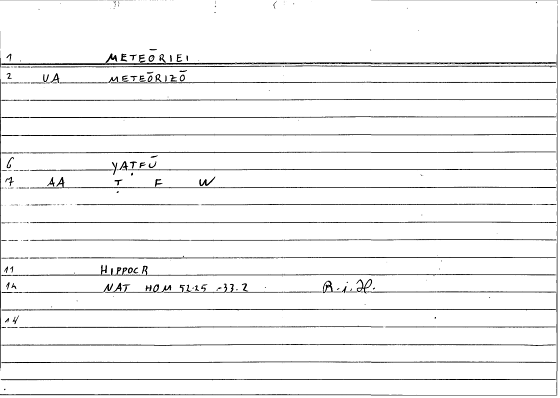 1 METEŌRIEI
2 UA METEŌRIZŌ
6 YAṬFŪ
7 AA Ṭ F W
11 HIPPOCR
12 NAT HOM 52.25 -33.2 R.i.H.
14